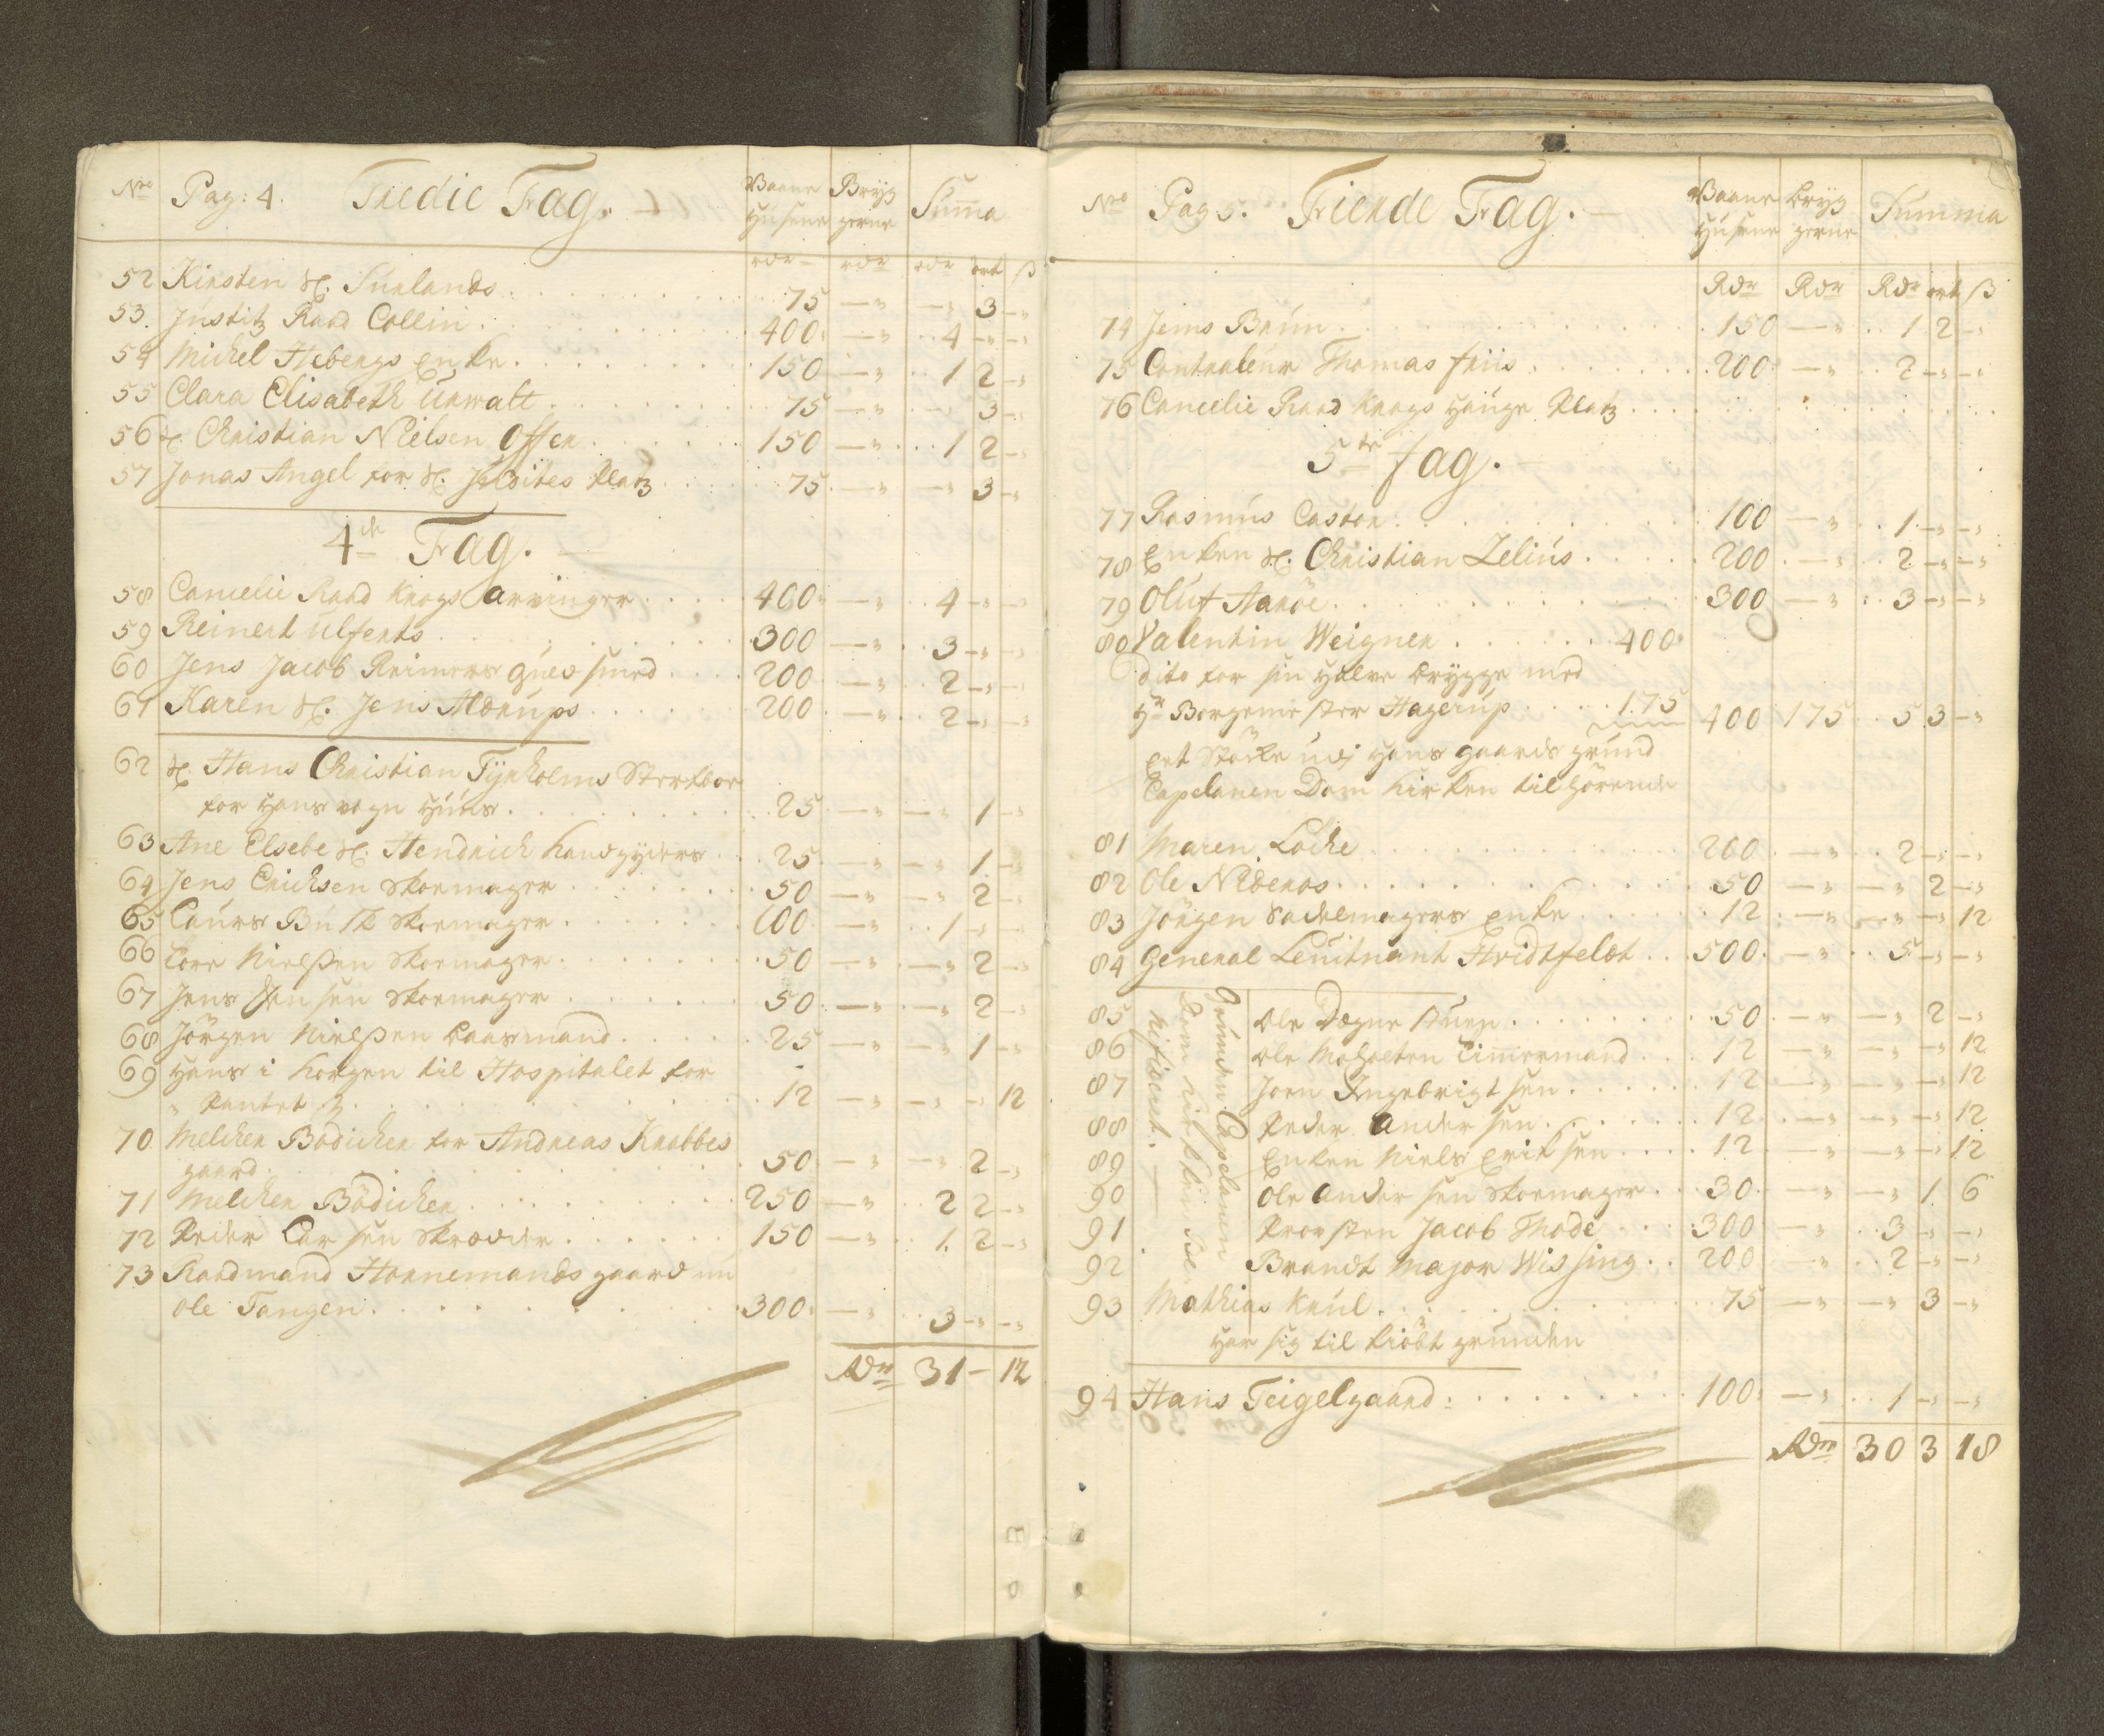 No Pag: 4. Tredie Fag. Vaane Husene Bryg gerne Summa
rdr rdr rdr ort ß
52 Kirsten Sl. Surlands 75 - - 3 -
53. Justitz Raad Collin 400 - 4 - -
54 Michel Hebergs Enke 150 - 1 2 -
55 Clara Elisabeth Unwatt 75 - - 3 -
56 Sl. Christian Nielsen Offer 150 - 1 2 -
57 Jonas Angel for Sl. Platz 75 - - 3 -
4de Fag.
58 Cancelie Raad Krogs Arvinger 400 - 4 - -
59 Reinert Ulferts 300 - 3 - -
60 Jens Jacob Reimers Guldsmed 200 - 2 - -
61 Karen Sl. Jens Aldrups 200 - 2 - -
62 Sl. Hans Christian Tyrholms Sterfboe
for Hans vogn Huus 25 - - 1 -
63 Ane Elsebe Sl. Hendrich Kandgyders 25 - - 1 -
64 Jens Erichsen Skoemager 50 - - 2 -
65 Laurs Busk Skoemager 100 - 1 - -
66 Tore Nielssen Skoemager 50 - - 2 -
67 Jens Jensen Skoemager 50 - - 2 -
68 Jörgen Nielssen Baasmand 25 - - 1 -
69 Hans i Korgen til Hospitalet for
Pantet 12 - - - 12
70 Melcher Bödicker for Andreas Knabbes
gaard 50 - - 2 -
71 Melcher Bödicker 250 - 2 2 -
72 Peder Larsen Skræder 150 - 1. 2 -
73 Raadmand Hornemands gaard nu
Ole Tangen 300 - 3 - -
Rdr 31 - 12
No Pag 5. Fierde Fag. Vaane Husene Bryg gerne Summa
Rdr Rdr Rdr ort ß
74 Jens Bruun 150 - 1 2 -
75 Contraleur Thomas Friis 200 - 2 - -
76 Cancelie Raad Krogs Hauge Platz
5te Fag.
77 Rasmus Castor 100 - 1 - -
78 Enken Sl. Christian Zelius 200 - 2 - -
79 Oluf Aaröe 300 - 3 - -
80 Valentin Weigner 400
dito for sin Halve brygge med
Hr Borgemester Hagerup 175 400 175 5 3 -
Eet Stöcke udj Hans Gaards grund
Capelanen Dom Kirken tilhörende
81 Maren Locke 200 - 2 - -
82 Ole Nideros 50 - - 2 -
83 Jörgen Sadelmagers Enke 12 - - - 12
84 General Leuitnant Hvidtfeldt 500 - 5 - -
Grunden Capelanen
Dom Kirken Be
neficeret.
85 Ole Dogne 50 - - 2 -
86 Ole Moholten Timmermand 12 - - - 12
87 Joen Ingebrigtsen 12 - - - 12
88 Peder Andersen 12 - - - 12
89 Enken Niels Eriksen 12 - - - 12
90 Ole Andersen Skoemager 30 - - 1 6
91 Provsten Jacob Thode 300 - 3 - -
92 Brandt Major Wissing 200 - 2 - -
93 Mathias Krul 75 - - 3 -
Har sig til kiöbt grunden
94 Hans Teigelgaard 100 - 1 - -
Rdr 30 3 18